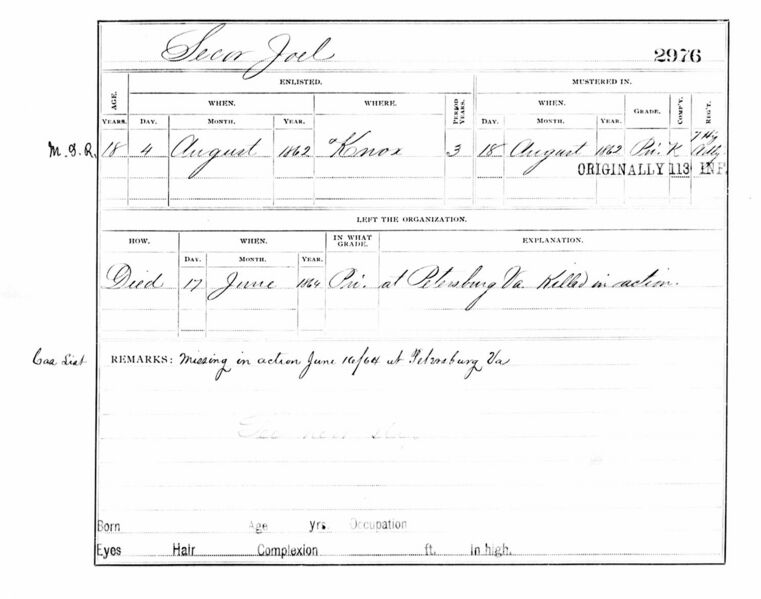 Secor Joel 2976
ENLISTED. MUSTERED IN.
AGE. WHEN. WHERE. PERIOD YEARS. WHEN. GRADE. COMP'Y. REG'T.
YEARS. DAY. MONTH. YEAR. DAY. MONTH. YEAR.
M.I.R. 18 4 August 1862 Knox 3 18 August 1862 Pri. K 7 Hy Arty
ORIGINALLY 113 INF.
LEFT THE ORGANIZATION.
HOW. WHEN. IN WHAT GRADE. EXPLANATION.
DAY. MONTH. YEAR.
Died 17 June 1864 Pri. at Petersburg Va. Killed in action.
Cas List REMARKS: Missing in action June 16/64 at Petersburg Va
See new slip
Born Age yrs. Occupation
Eyes Hair Complexion ft. in high.